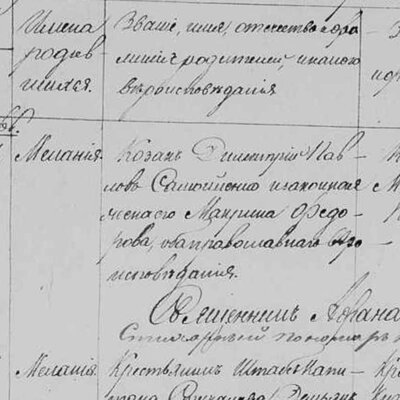 Имена
родив
шихся.
Званіе, имя, отечество и фа
милія родителей, и какого
вѣроисповѣданія
Меланія.
Козакъ Димитрій Пав
ловъ Самойленко и законная
жена его Макрина Федо
рова, оба православнаго
исповѣданія.
Священникъ
Меланія.
Крестьянинъ Штабс Капи
тана Демьянъ